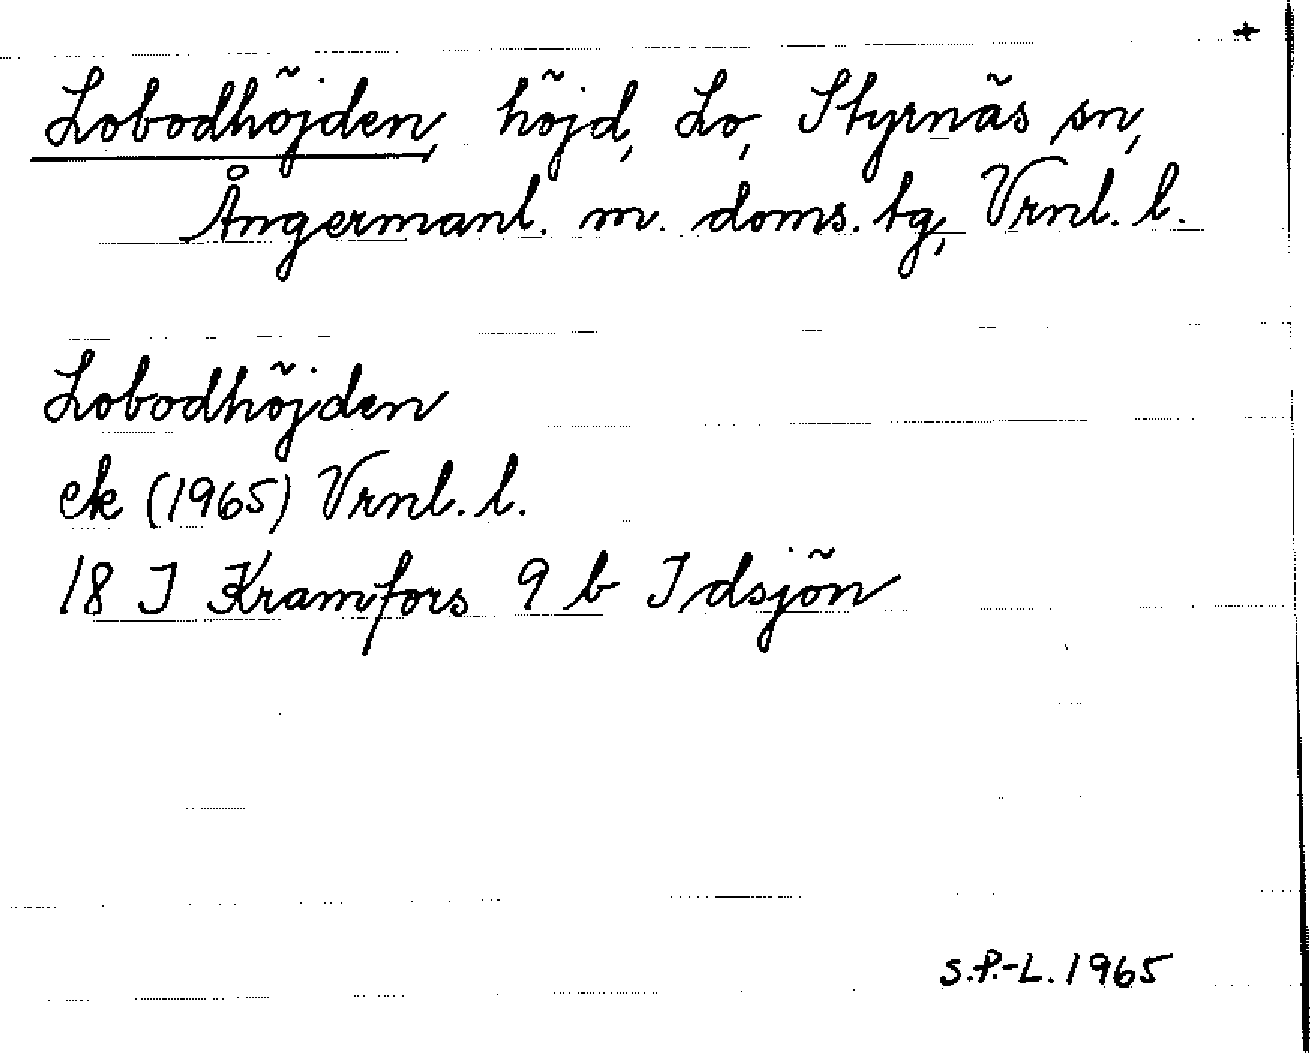 +
Lobodhöjden, höjd, Lo, Styrnäs sn,
Ångermanl. m. doms. tg, Vrnl. l.
Lobodhöjden
ek (1965) Vrnl. l.
18 J Kramfors 9 b Idsjön
S.P.-L. 1965